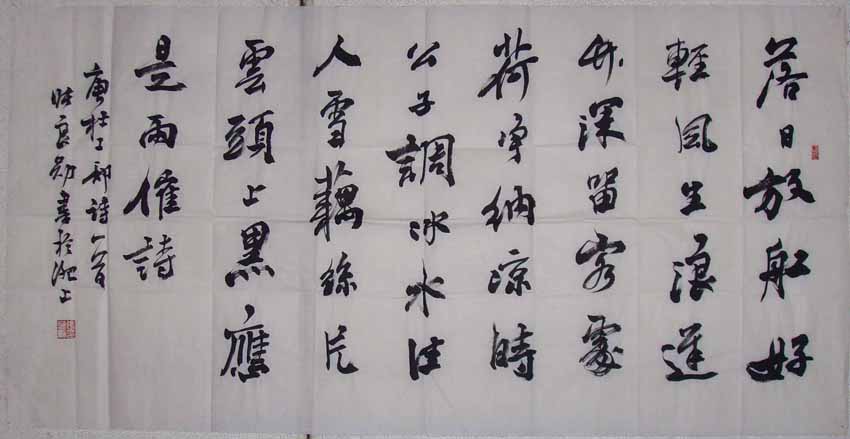 落日放船好
輕風生浪遲
竹深留客處
荷淨納涼時
公子調冰水佳
人雪藕絲片
雲頭上黑應
是雨催詩
唐杜工部詩一首
良勛書於淝上